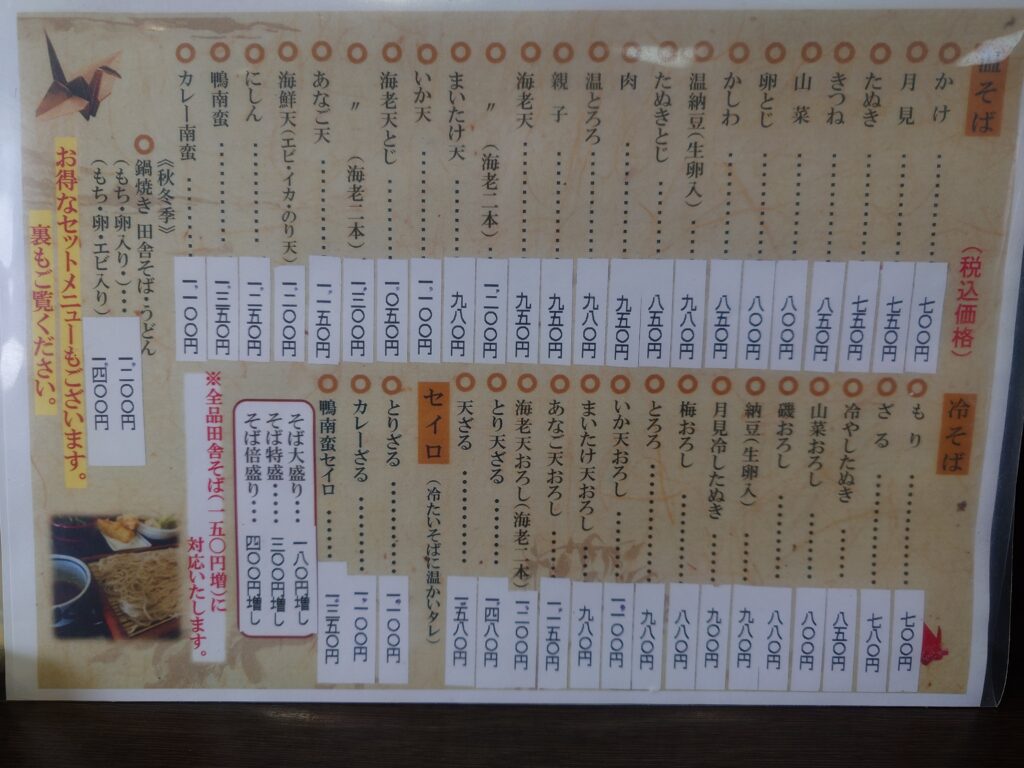 温そば
（税込価格）
かけ……七〇〇円
月見……七五〇円
たぬき……七五〇円
きつね……八五〇円
山菜……八〇〇円
卵とじ……八〇〇円
かしわ……八五〇円
温納豆（生卵入）……九八〇円
たぬきとじ……八五〇円
肉……九五〇円
温とろろ……九八〇円
親子……九五〇円
海老天……九五〇円
〃（海老二本）……一、二〇〇円
まいたけ天……九八〇円
いか天……一、一〇〇円
海老天とじ……一、〇五〇円
〃（海老二本）……一、三〇〇円
あなご天……一、一五〇円
海鮮天（エビ・イカ・のり天）一、二〇〇円
にしん……一、二五〇円
鴨南蛮……一、三五〇円
カレー南蛮……一、一〇〇円
《秋冬季》
鍋焼き 田舎そば・うどん
（もち・卵入り）…一、二〇〇円
（もち・卵・エビ入り）一、四〇〇円
お得なセットメニューもございます。
裏もご覧ください。
冷そば
もり……七〇〇円
ざる……七八〇円
冷やしたぬき……八五〇円
山菜おろし……八〇〇円
磯おろし……八八〇円
納豆（生卵入）……九八〇円
月見冷したぬき……九〇〇円
梅おろし……八八〇円
とろろ……九八〇円
いか天おろし……一、一〇〇円
まいたけ天おろし……九八〇円
あなご天おろし……一、一五〇円
海老天おろし（海老二本）一、二〇〇円
とり天ざる……一、四八〇円
天ざる……一、五八〇円
セイロ（冷たいそばに温かいタレ）
とりざる……一、一〇〇円
カレーざる……一、一〇〇円
鴨南蛮セイロ……一、三五〇円
そば大盛り… 一八〇円増し
そば特盛… 三〇〇円増し
そば倍盛り… 四〇〇円増し
※全品田舎そば（一五〇円増）に
対応いたします。